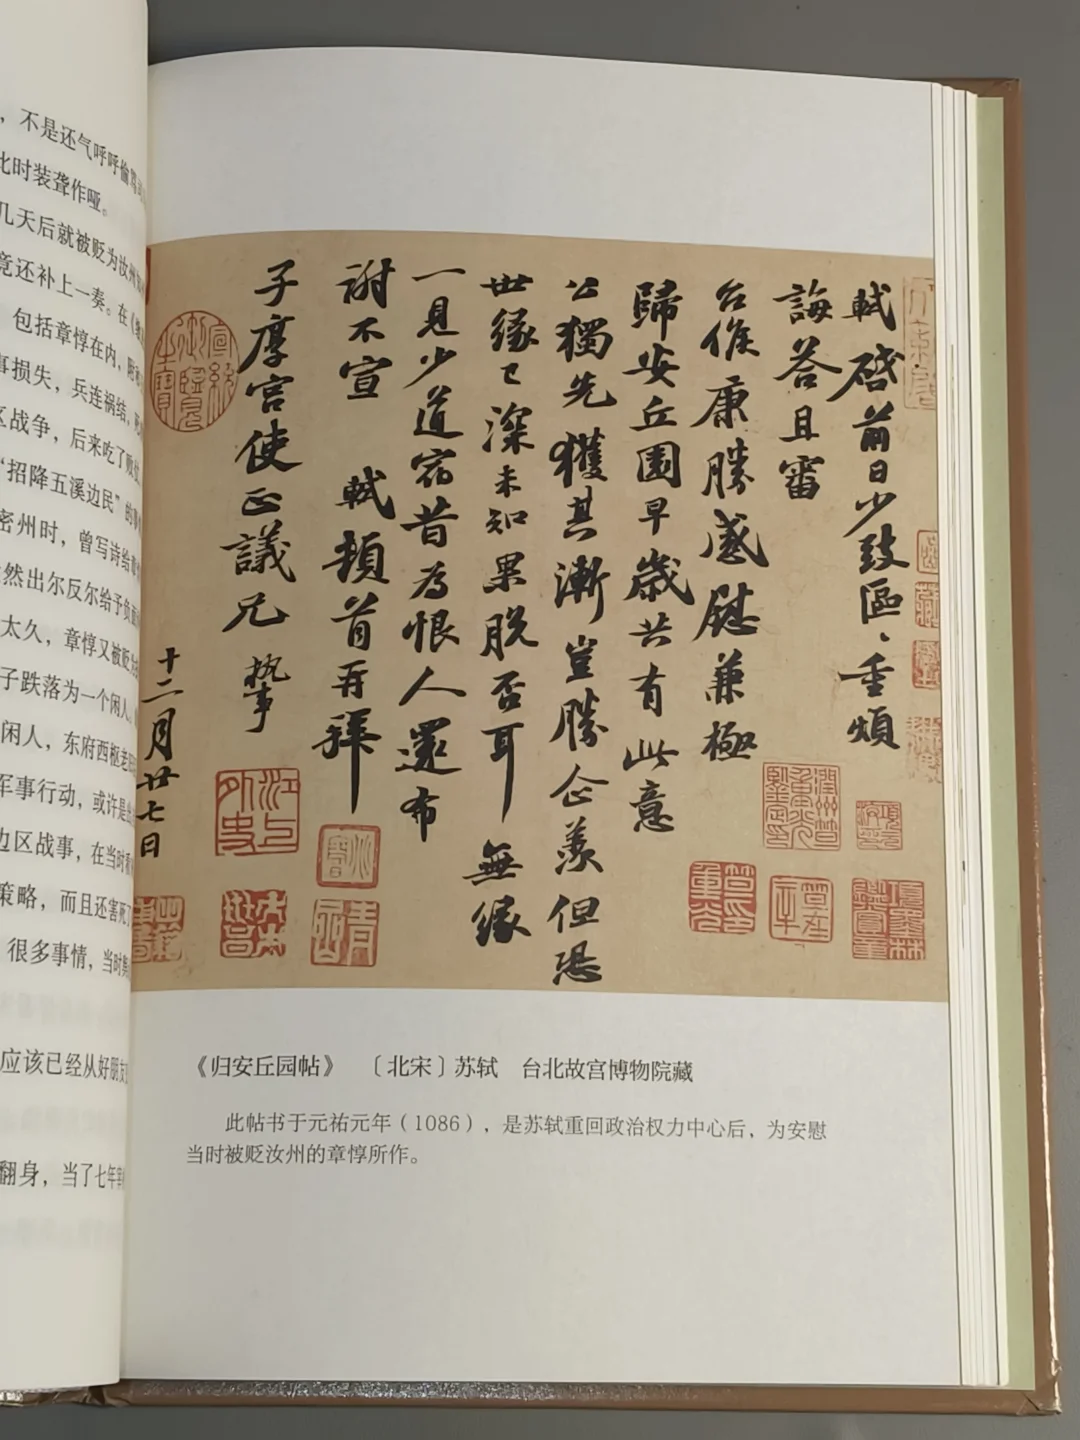 ，不是还气呼呼
此时装聋作哑。
几天后就被贬为汝州
竟还补上一奏。在
包括章惇在内，
事损失，兵连祸结，
区战争，后来吃了败仗
“招降五溪边民”的
密州时，曾写诗给
然出尔反尔给予负面
太久，章惇又被贬
子跌落为一个闲人
闲人，东府西枢老
军事行动，或许是
边区战事，在当时
策略，而且还害死了
很多事情，当时
应该已经从好朋友
翻身，当了七年宰
軾啓前日少致區、重煩
誨答且審
台候康勝感慰兼極
歸安丘園早歲共有此意
公獨先獲其漸豈勝企羨但恐
世緣已深未知果脫否耳無緣
一見少道宿昔為恨人還布
謝不宣 軾頓首再拜
子厚宮使正議兄 執事
十二月廿七日
《归安丘园帖》 〔北宋〕苏轼 台北故宫博物院藏
此帖书于元祐元年（1086），是苏轼重回政治权力中心后，为安慰
当时被贬汝州的章惇所作。